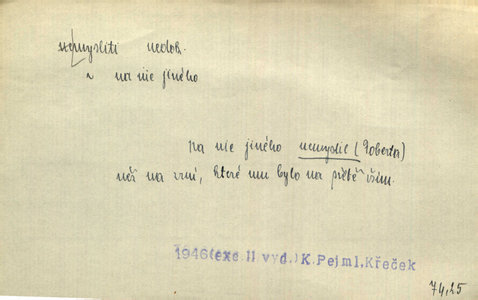 nemysliti nedok.
~ na nic jiného
na nic jiného nemyslil (Robertu)
než na zrní, které mu bylo na světě vším.
1946(exc.II vyd.) K.Pejml,Křeček
74,25